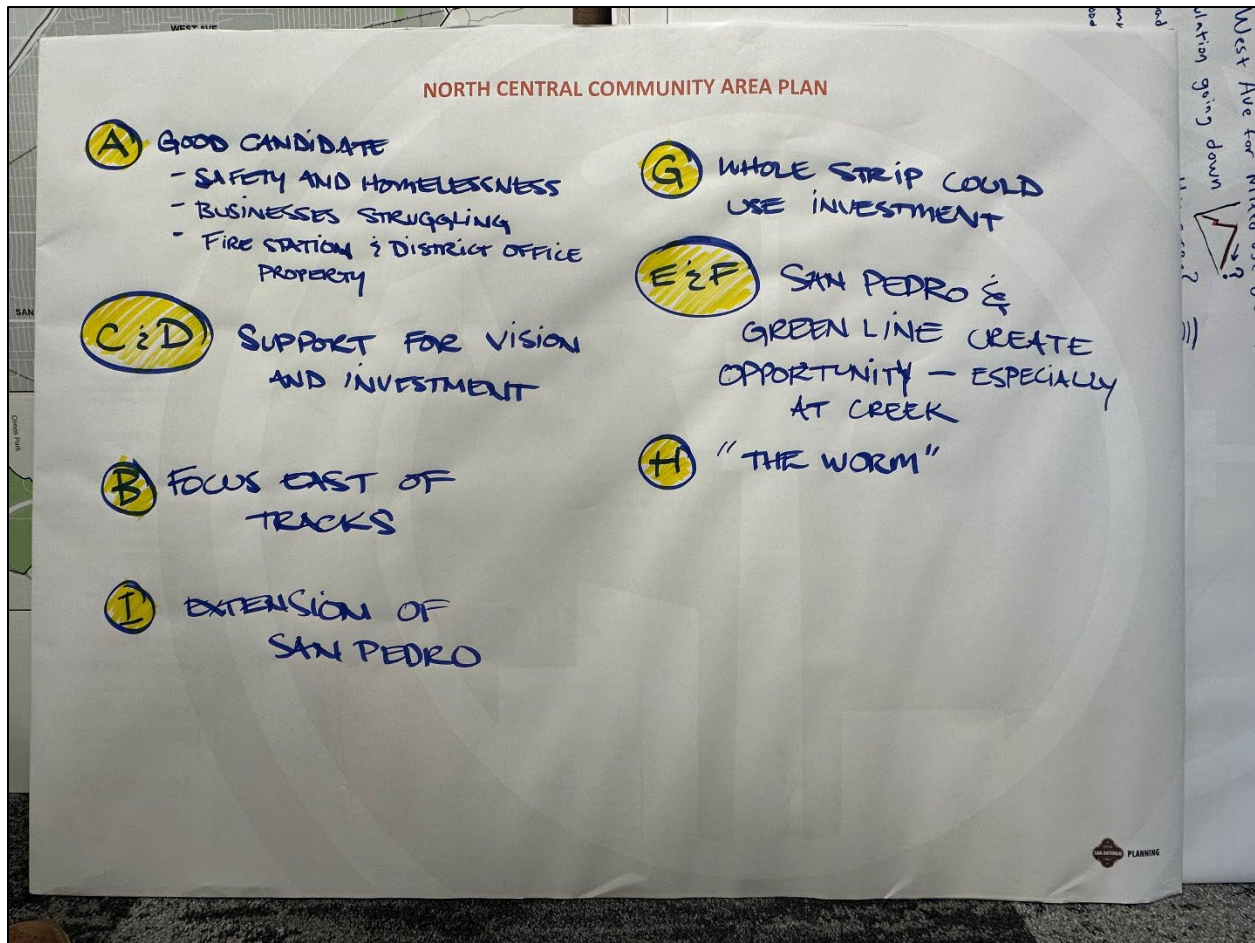 WEST AVE
NORTH CENTRAL COMMUNITY AREA PLAN
A GOOD CANDIDATE
- SAFETY AND HOMELESSNESS
- BUSINESSES STRUGGLING
- FIRE STATION & DISTRICT OFFICE
PROPERTY
C & D SUPPORT FOR VISION
AND INVESTMENT
B FOCUS EAST OF
TRACKS
I EXTENSION OF
SAN PEDRO
G WHOLE STRIP COULD
USE INVESTMENT
E & F SAN PEDRO &
GREEN LINE CREATE
OPPORTUNITY — ESPECIALLY
AT CREEK
H "THE WORM"
SAN ANTONIO PLANNING
SAN
Olmos Park
West Ave for
ulation going down
?